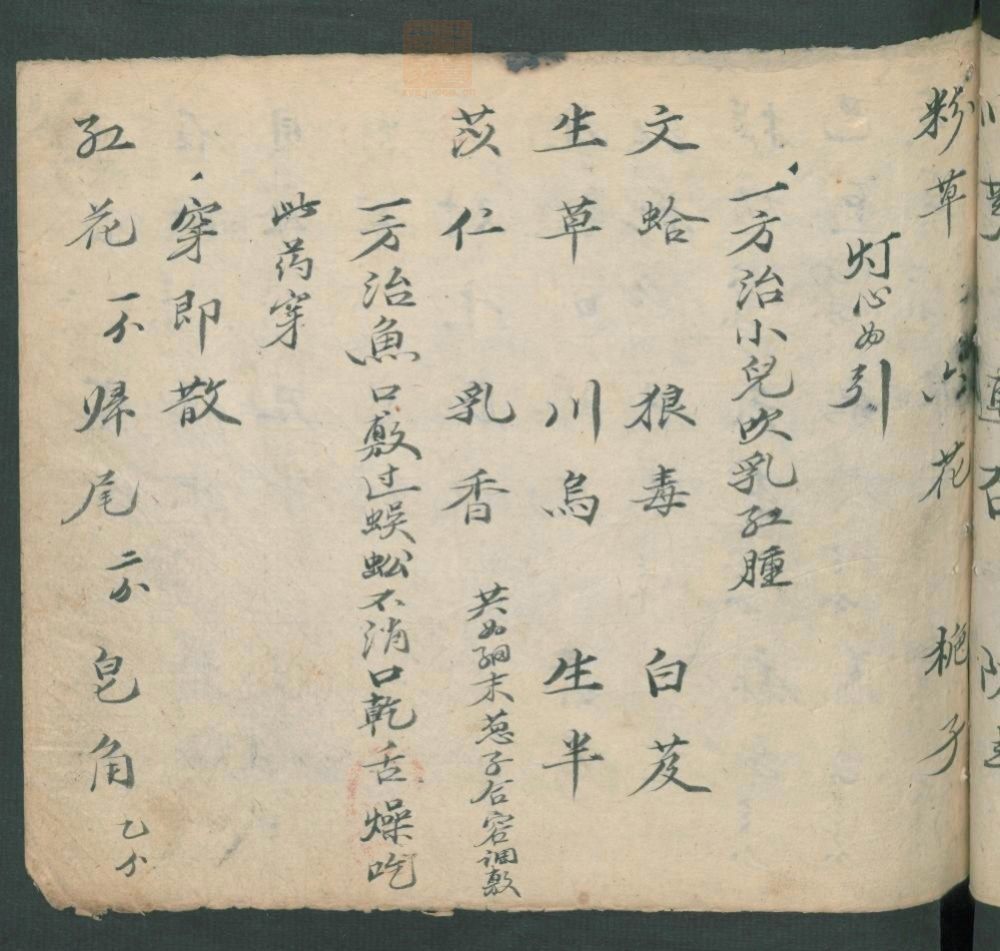 粉草 六花 栀子
灯心为引
一方治小兒吹乳红腫
文蛤 狼毒 白芨
生草 川烏 生半
苡仁 乳香 共为細末葱子合窖调敷
一方治魚口敷过蜈蚣不消口乾舌燥吃
此药穿
穿即散
红花 一个 归尾 二个 皂角 乙个